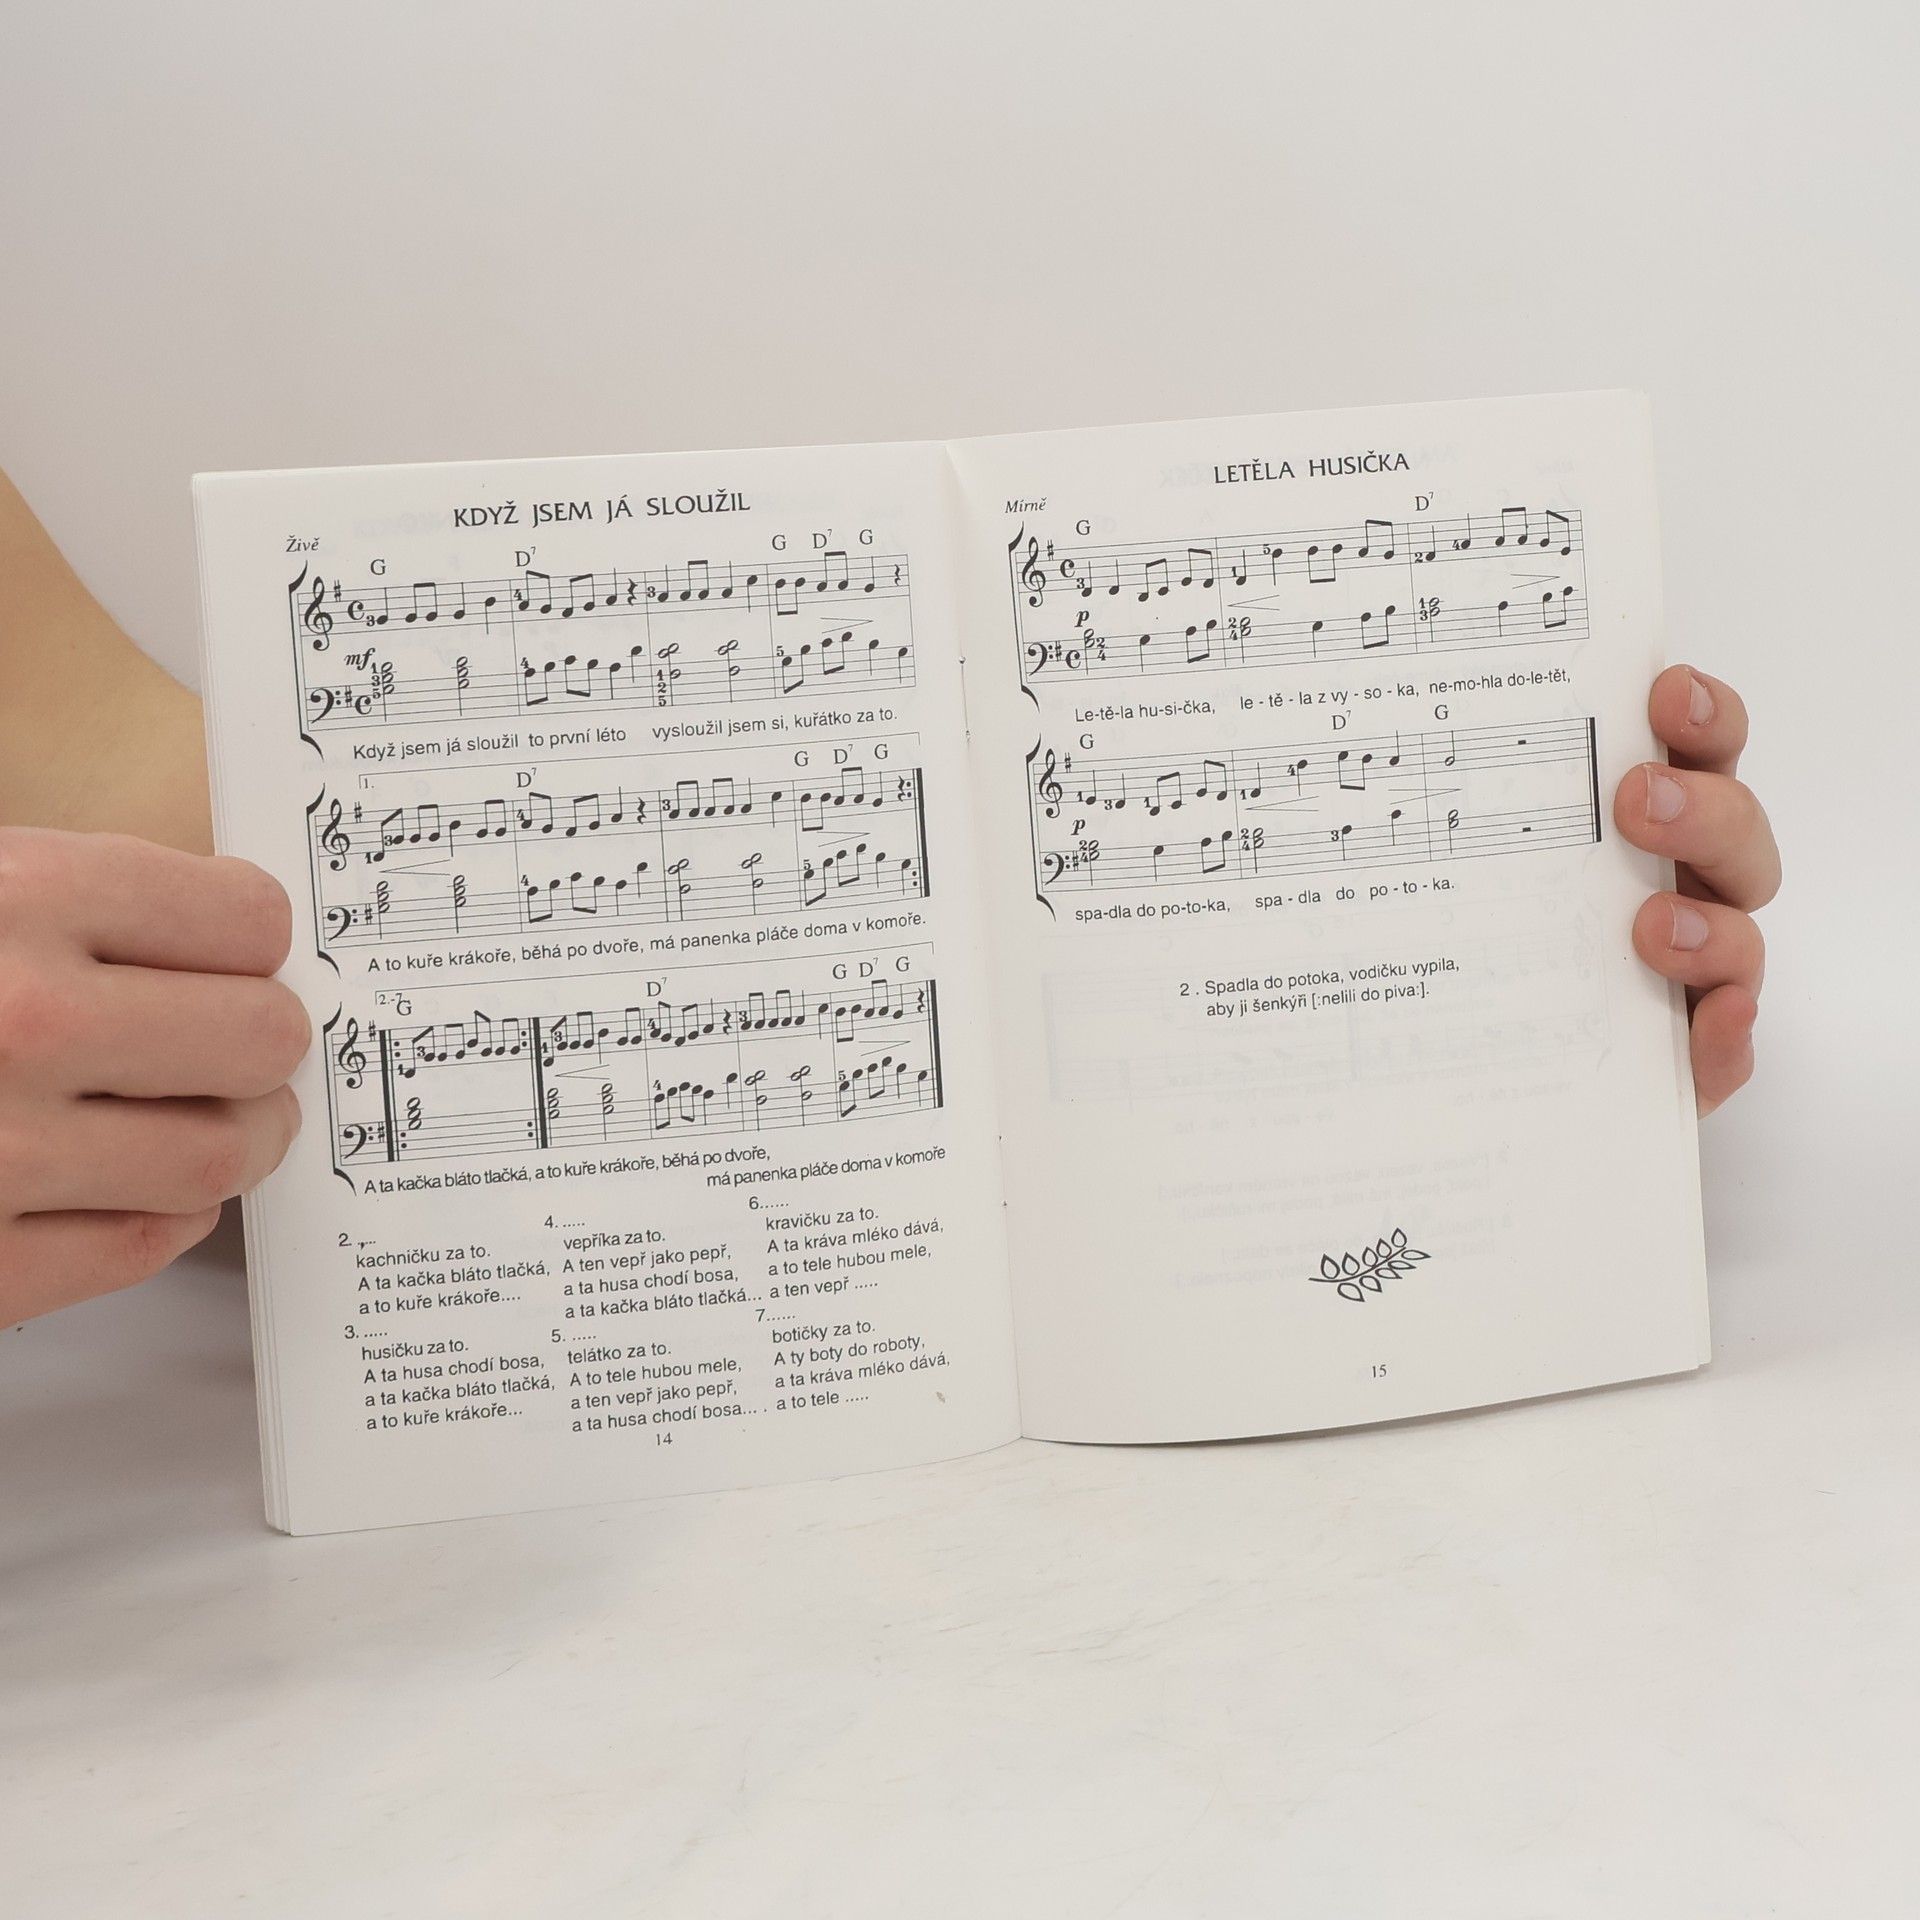 KDYŽ JSEM JÁ SLOUŽIL
Živě
G D7 G D7 G
mf
Když jsem já sloužil to první léto vysloužil jsem si, kuřátko za to.
1.
D7 G D7 G
A to kuře krákoře, běhá po dvoře, má panenka pláče doma v komoře.
2.-7.
G D7 G D7 G
A ta kačka bláto tlačká, a to kuře krákoře, běhá po dvoře,
má panenka pláče doma v komoře
2. ....
kachničku za to.
A ta kačka bláto tlačká,
a to kuře krákoře....
3. .....
husičku za to.
A ta husa chodí bosa,
a ta kačka bláto tlačká,
a to kuře krákoře...
4. .....
vepříka za to.
A ten vepř jako pepř,
a ta husa chodí bosa,
a ta kačka bláto tlačká...
5. .....
telátko za to.
A to tele hubou mele,
a ten vepř jako pepř,
a ta husa chodí bosa... .
6......
kravičku za to.
A ta kráva mléko dává,
a to tele hubou mele,
a ten vepř .....
7......
botičky za to.
A ty boty do roboty,
a ta kráva mléko dává,
a to tele .....
14
LETĚLA HUSIČKA
Mírně
G D7
p
Le-tě-la hu-si-čka, le - tě - la z vy - so - ka, ne-mo-hla do-le-tět,
G D7 G
p
spa-dla do po-to-ka, spa - dla do po - to - ka.
2 . Spadla do potoka, vodičku vypila,
aby ji šenkýři [:nelili do piva:].
15